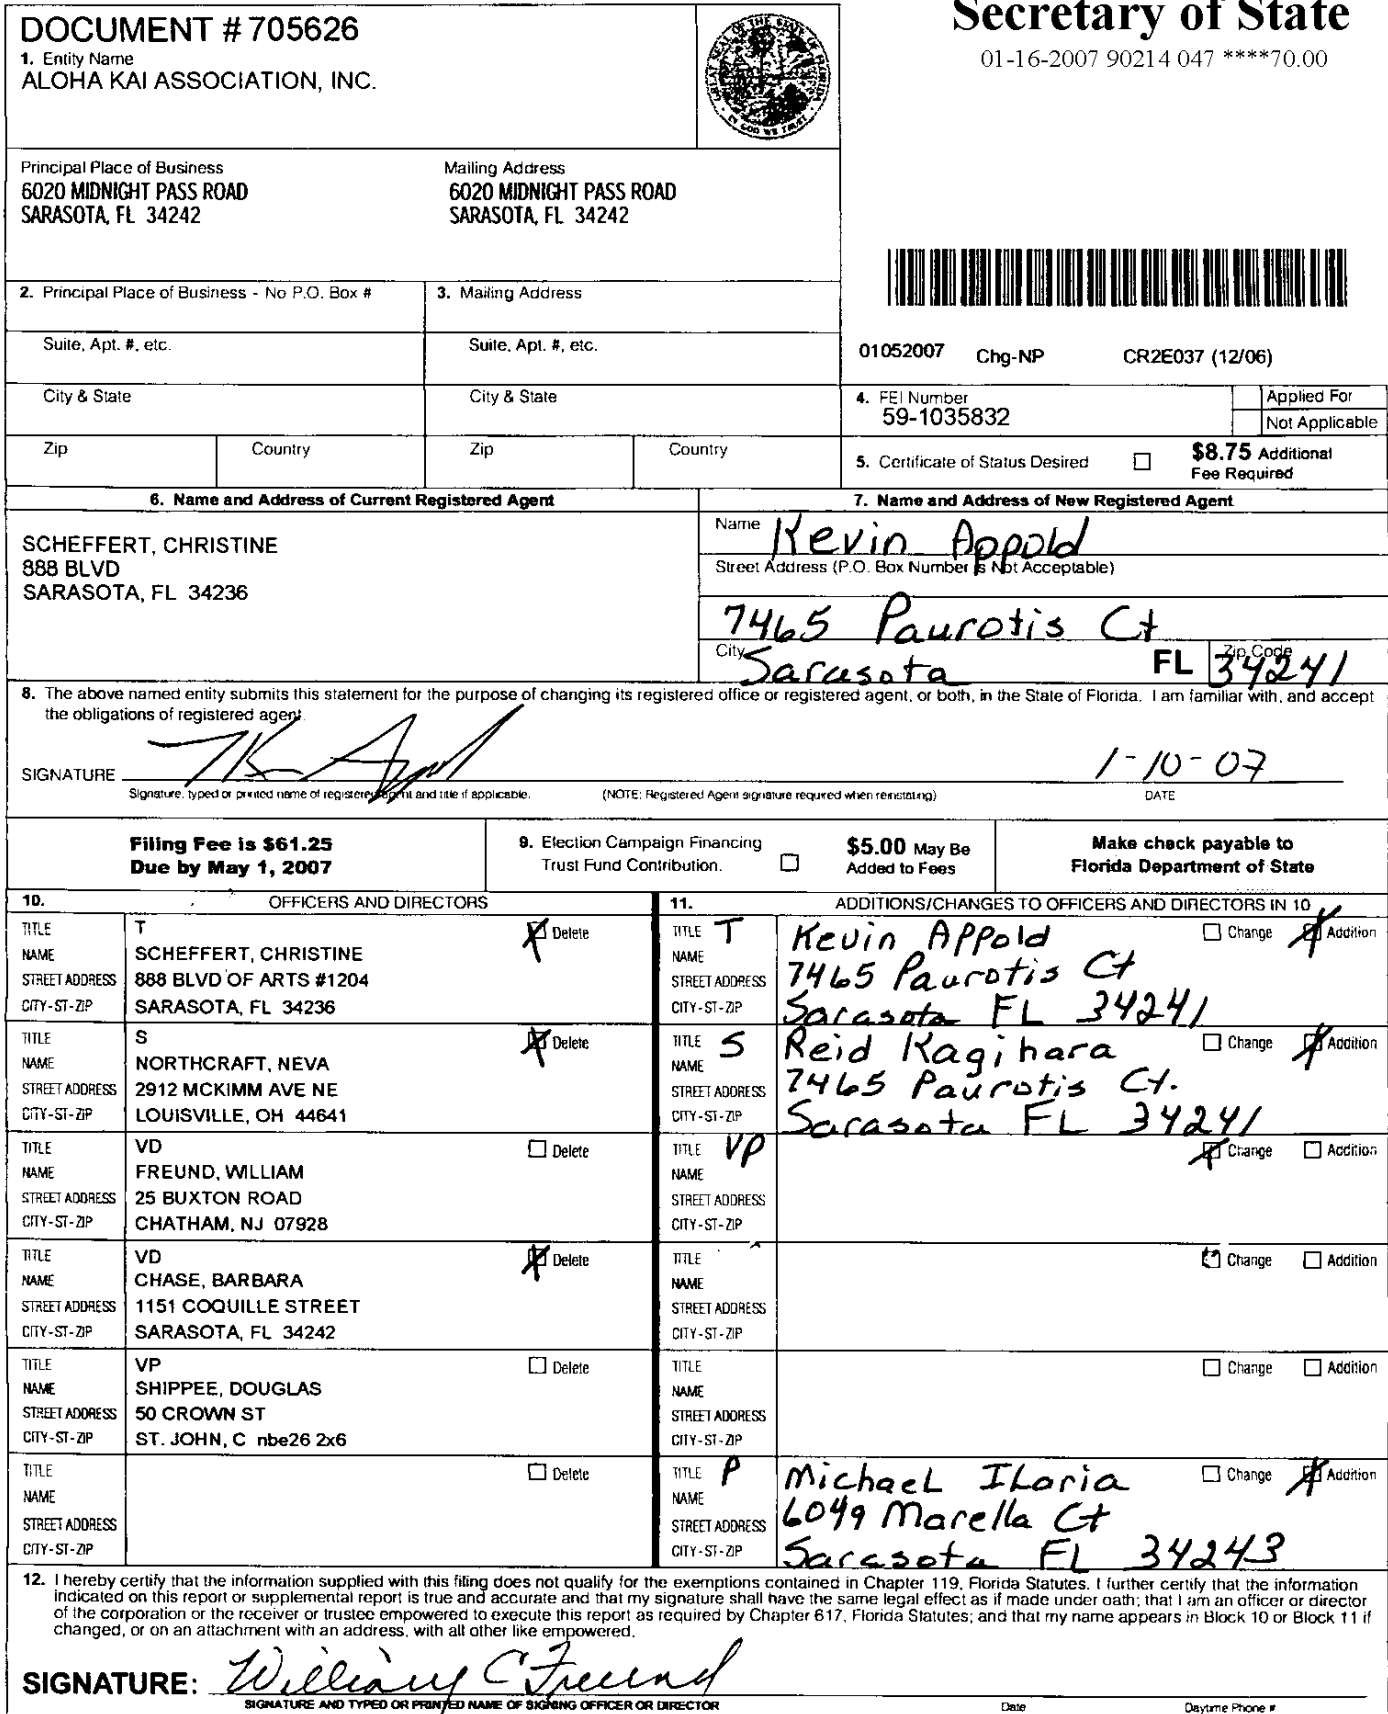 DOCUMENT # 705626
1. Entity Name
ALOHA KAI ASSOCIATION, INC.
Secretary of State
01-16-2007 90214 047 ****70.00
Principal Place of Business
6020 MIDNIGHT PASS ROAD
SARASOTA, FL 34242
Mailing Address
6020 MIDNIGHT PASS ROAD
SARASOTA, FL 34242
2. Principal Place of Business - No P.O. Box #
3. Mailing Address
Suite, Apt. #, etc.
Suite, Apt. #, etc.
01052007 Chg-NP CR2E037 (12/06)
City & State
City & State
4. FEI Number
59-1035832
Applied For
Not Applicable
Zip Country Zip Country
5. Certificate of Status Desired
$8.75 Additional
Fee Required
6. Name and Address of Current Registered Agent
SCHEFFERT, CHRISTINE
888 BLVD
SARASOTA, FL 34236
7. Name and Address of New Registered Agent
Name Kevin Appold
Street Address (P.O. Box Number is Not Acceptable)
7465 Paurotis Ct
City Sarasota FL Zip Code 34241
8. The above named entity submits this statement for the purpose of changing its registered office or registered agent, or both, in the State of Florida. I am familiar with, and accept
the obligations of registered agent.
SIGNATURE 1-10-07
Signature, typed or printed name of registered agent and title if applicable. (NOTE: Registered Agent signature required when reinstating) DATE
Filing Fee is $61.25
Due by May 1, 2007
9. Election Campaign Financing
Trust Fund Contribution.
$5.00 May Be
Added to Fees
Make check payable to
Florida Department of State
10. OFFICERS AND DIRECTORS
11. ADDITIONS/CHANGES TO OFFICERS AND DIRECTORS IN 10
TITLE T Delete
NAME SCHEFFERT, CHRISTINE
STREET ADDRESS 888 BLVD OF ARTS #1204
CITY-ST-ZIP SARASOTA, FL 34236
TITLE T Change Addition
NAME Kevin APPold
STREET ADDRESS 7465 Paurotis Ct
CITY-ST-ZIP Sarasota FL 34241
TITLE S Delete
NAME NORTHCRAFT, NEVA
STREET ADDRESS 2912 MCKIMM AVE NE
CITY-ST-ZIP LOUISVILLE, OH 44641
TITLE S Change Addition
NAME Reid Kagihara
STREET ADDRESS 7465 Paurotis Ct.
CITY-ST-ZIP Sarasota FL 34241
TITLE VD Delete
NAME FREUND, WILLIAM
STREET ADDRESS 25 BUXTON ROAD
CITY-ST-ZIP CHATHAM, NJ 07928
TITLE VP Change Addition
NAME
STREET ADDRESS
CITY-ST-ZIP
TITLE VD Delete
NAME CHASE, BARBARA
STREET ADDRESS 1151 COQUILLE STREET
CITY-ST-ZIP SARASOTA, FL 34242
TITLE Change Addition
NAME
STREET ADDRESS
CITY-ST-ZIP
TITLE VP Delete
NAME SHIPPEE, DOUGLAS
STREET ADDRESS 50 CROWN ST
CITY-ST-ZIP ST. JOHN, C nbe26 2x6
TITLE Change Addition
NAME
STREET ADDRESS
CITY-ST-ZIP
TITLE Delete
NAME
STREET ADDRESS
CITY-ST-ZIP
TITLE P Change Addition
NAME Michael ILaria
STREET ADDRESS 6049 Marella Ct
CITY-ST-ZIP Sarasota FL 34243
12. I hereby certify that the information supplied with this filing does not qualify for the exemptions contained in Chapter 119, Florida Statutes. I further certify that the information
indicated on this report or supplemental report is true and accurate and that my signature shall have the same legal effect as if made under oath; that I am an officer or director
of the corporation or the receiver or trustee empowered to execute this report as required by Chapter 617, Florida Statutes; and that my name appears in Block 10 or Block 11 if
changed, or on an attachment with an address, with all other like empowered.
SIGNATURE: William C Freund
SIGNATURE AND TYPED OR PRINTED NAME OF SIGNING OFFICER OR DIRECTOR Date Daytime Phone #